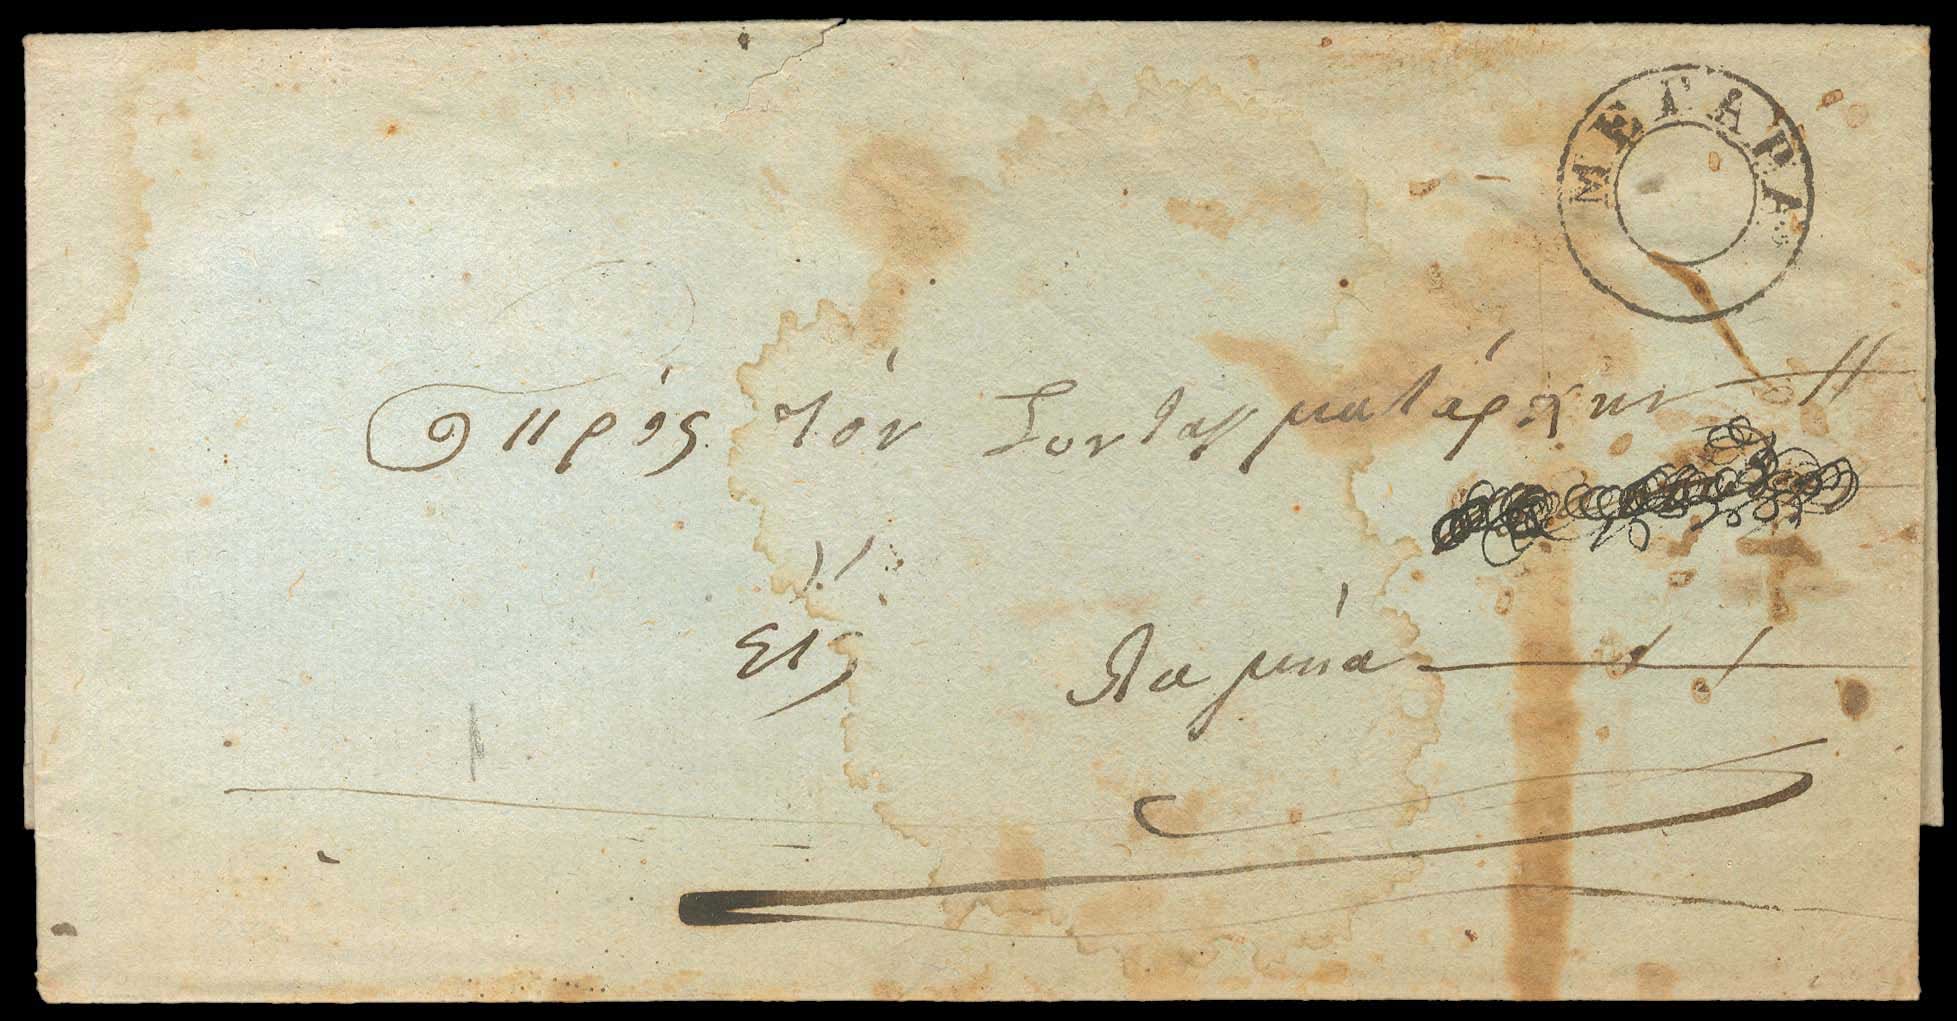 ΜΕΓΑΡΑ
Πρός τόν Συνταγματάρχην
Εις Λαμία